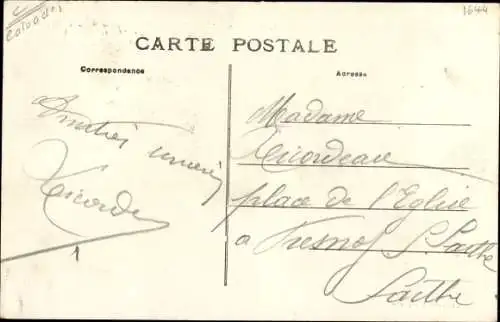 Calvados
1644
CARTE POSTALE
Correspondance
Adresse
Amitiés
Ricordeau
Madame
Ricordeau
place de l'Eglise
a Fresnay S. Sarthe
Sarthe